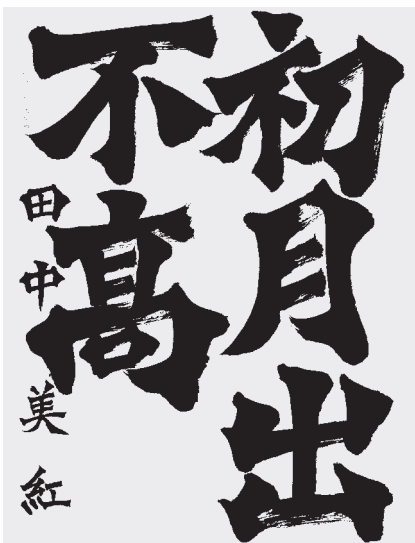 初月出
不髙
田中美紅